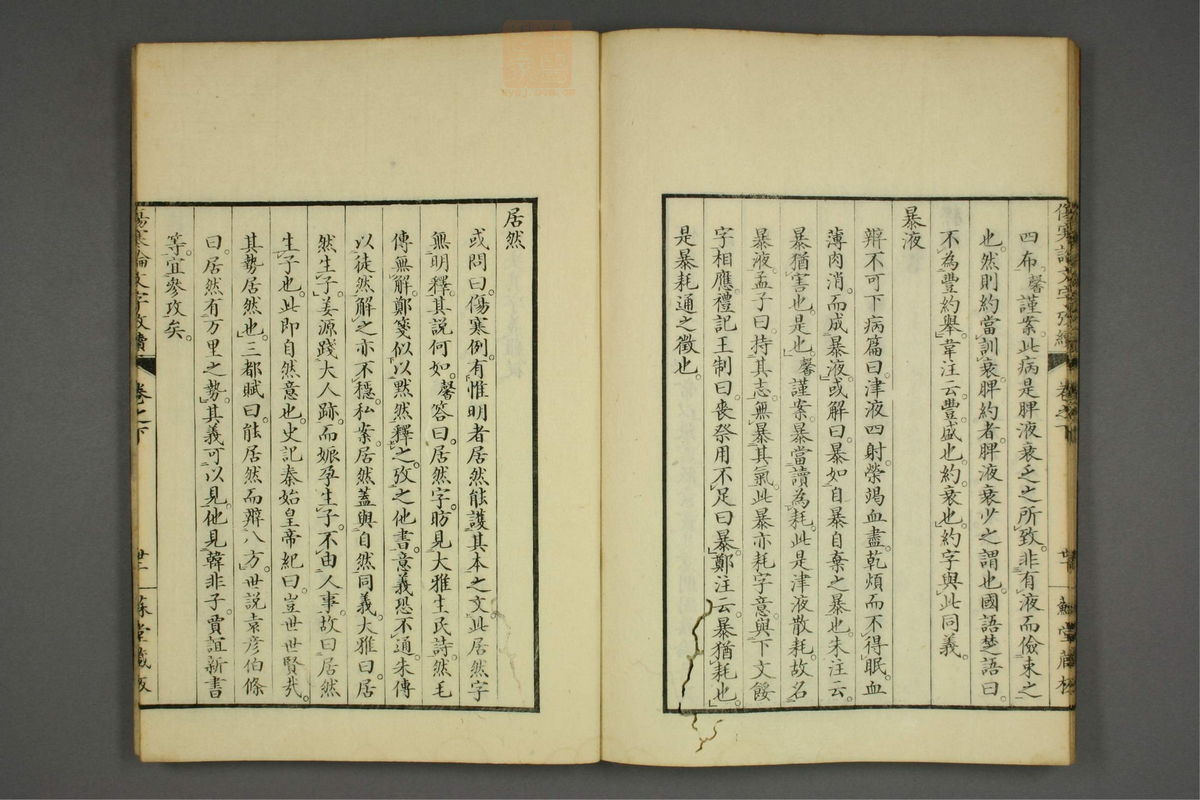 四布。馨謹案。此病是脾液衰乏之所致。非有液而儉束之
也。然則約當訓衰。脾約者。脾液衰少之謂也。國語楚語曰。
不為豐約舉。韋注云。豐。盛也。約。衰也。約字與此同義。
暴液
辨不可下病篇曰。津液四射。榮竭血盡。乾煩而不得眠。血
薄肉消。而成暴液。或解曰。暴如自暴自棄之暴也。朱注云。
暴猶害也。是也。馨謹案。暴當讀為耗。此是津液散耗。故名
暴液。孟子曰。持其志。無暴其氣。此暴亦耗字意。與下文餒
字相應。禮記王制曰。喪祭用不足曰暴。鄭注云。暴猶耗也。
是暴耗通之徵也。
居然
或問曰。傷寒例。有惟明者居然能護其本之文。此居然字
無明釋。其說何如。馨答曰。居然字昉見大雅生民詩。然毛
傳無解。鄭箋似以默然釋之。攷之他書。意義恐不通。朱傳
以徒然解之。亦不穩。私案。居然蓋與自然同義。大雅曰。居
然生子。姜源踐大人跡。而娠孕生子。不由人事。故曰居然
生子也。此即自然意也。史記秦始皇帝紀曰。豈世世賢哉。
其勢居然也。三都賦曰。能居然而辨八方。世說袁彥伯條
曰。居然有万里之勢。其義可以見。他見韓非子賈誼新書
等。宜參攷矣。
傷寒論文字攷續 卷之下 世二 蘇堂藏板